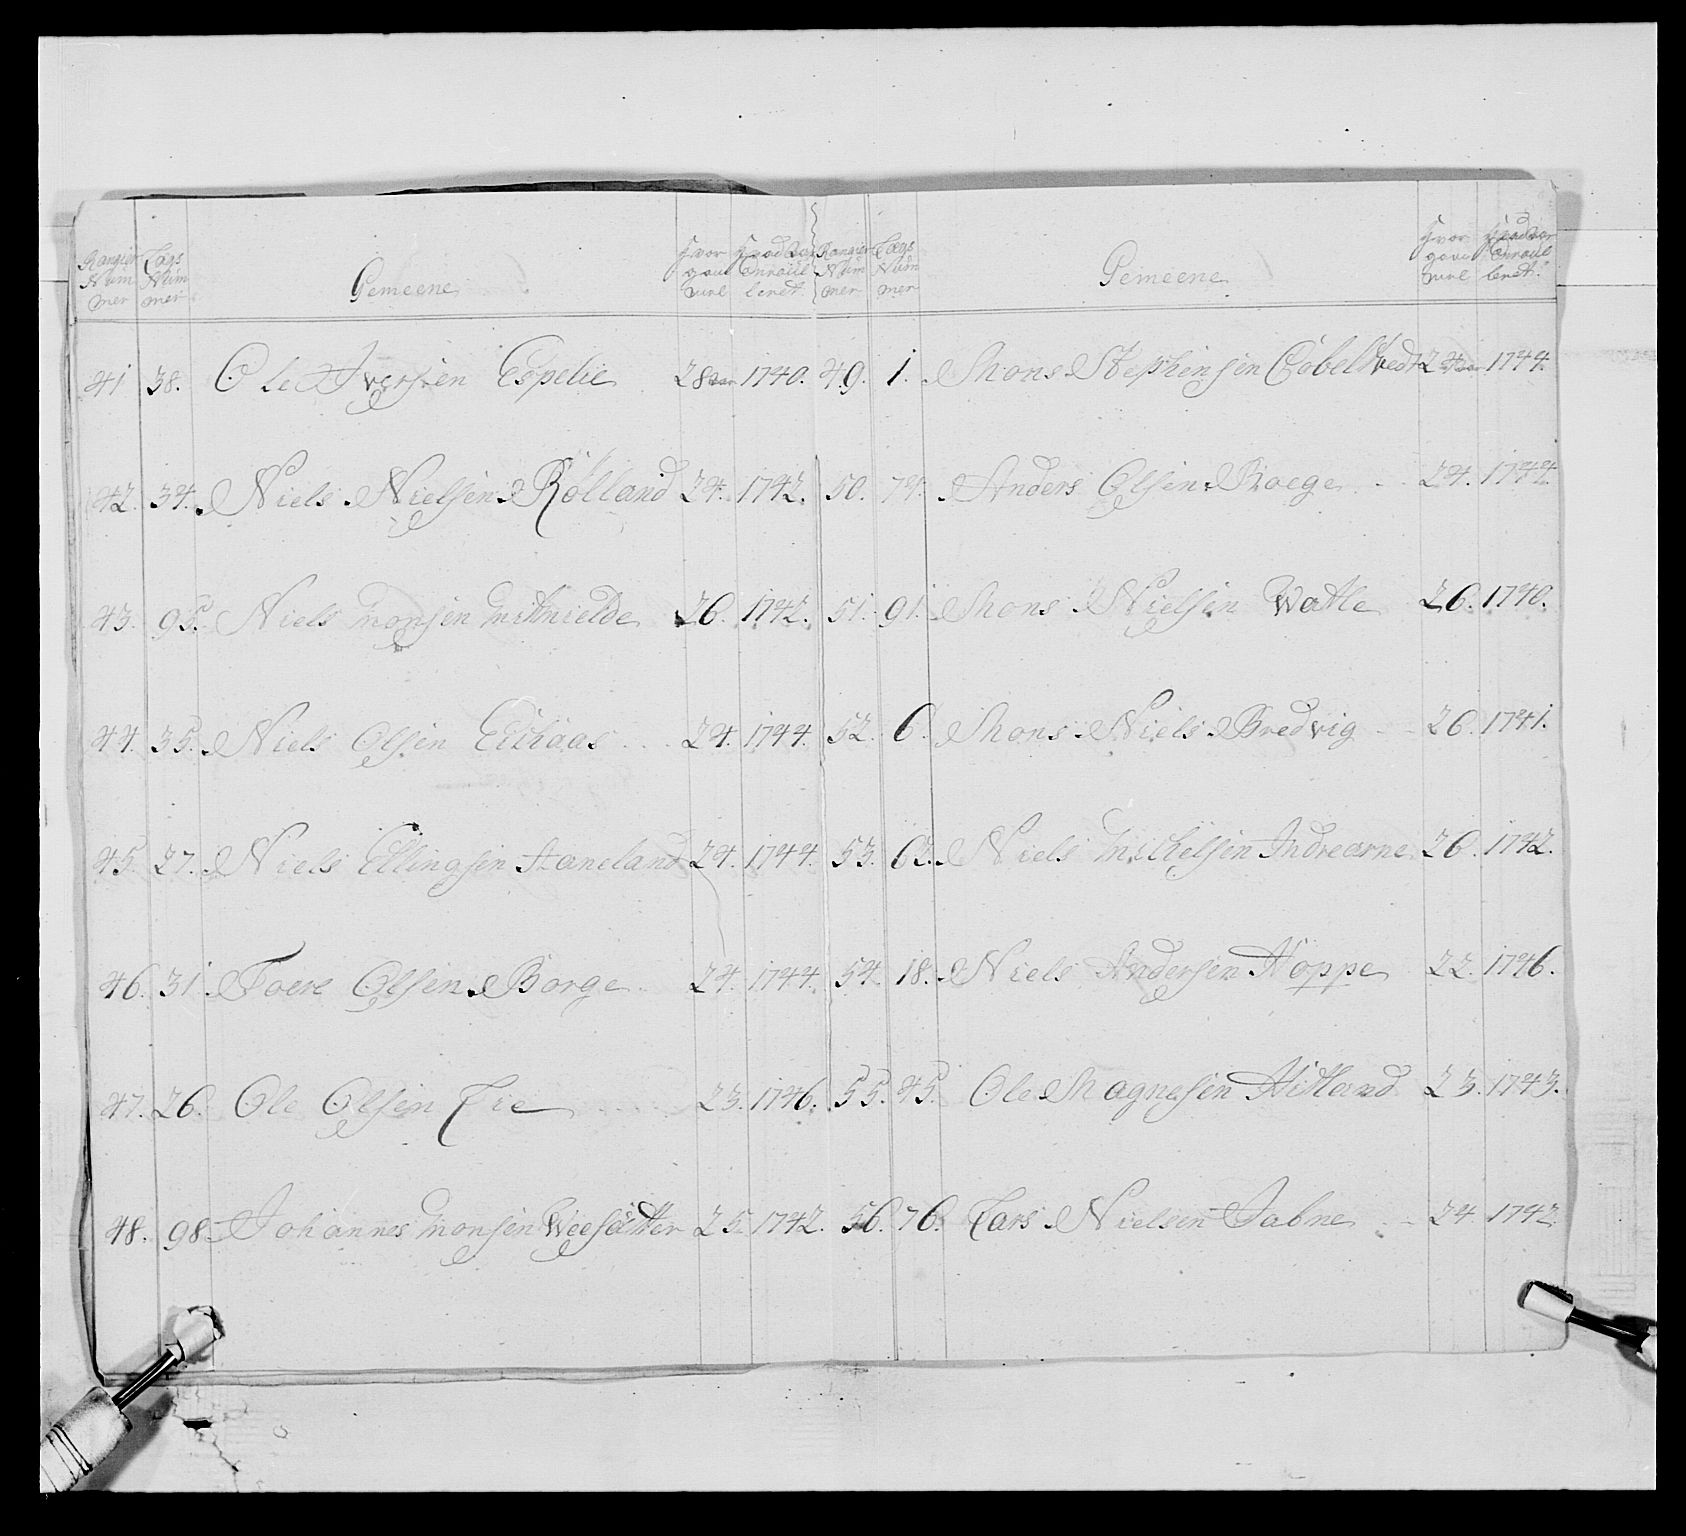 Rangier Nüm mer
Lægs Nüm mer
Gemeene
Hvor gaml
Hvad Aar Enroül leret
Rangier Nüm mer
Lægs Nüm mer
Gemeene
Hvor gaml
Hvad Aar Enroül leret
41 38. Ole Iversen Espelie 28 aar 1740.
42. 34. Niels Nielsen Rölland 24. 1742.
43. 95. Niels Monsen Mithielde 26. 1742.
44. 35. Niels Olsen Eithaas 24. 1744.
45. 27. Niels Ellingsen Haneland 24. 1744.
46. 31. Toere Olsen Borge 24. 1744.
47. 26. Ole Olsen Lie 23. 1746.
48. 98. Johannes Monsen Weesætter 25. 1742.
49. 1. Mons Stephensen Cöbeltvedt 24 aar 1744.
50. 74. Anders Olsen Roege 24. 1744.
51. 91. Mons Nielsen Watle 26. 1740.
52. 6. Mons Niels Bredvig 26. 1741.
53. 62. Niels Michelsen Indrearne 26. 1742.
54. 18. Niels Andersen Hoppe 22. 1746.
55. 45. Ole Magnesen Hitland 23. 1743.
56. 76. Lars Nielsen Tabne 24 1742.